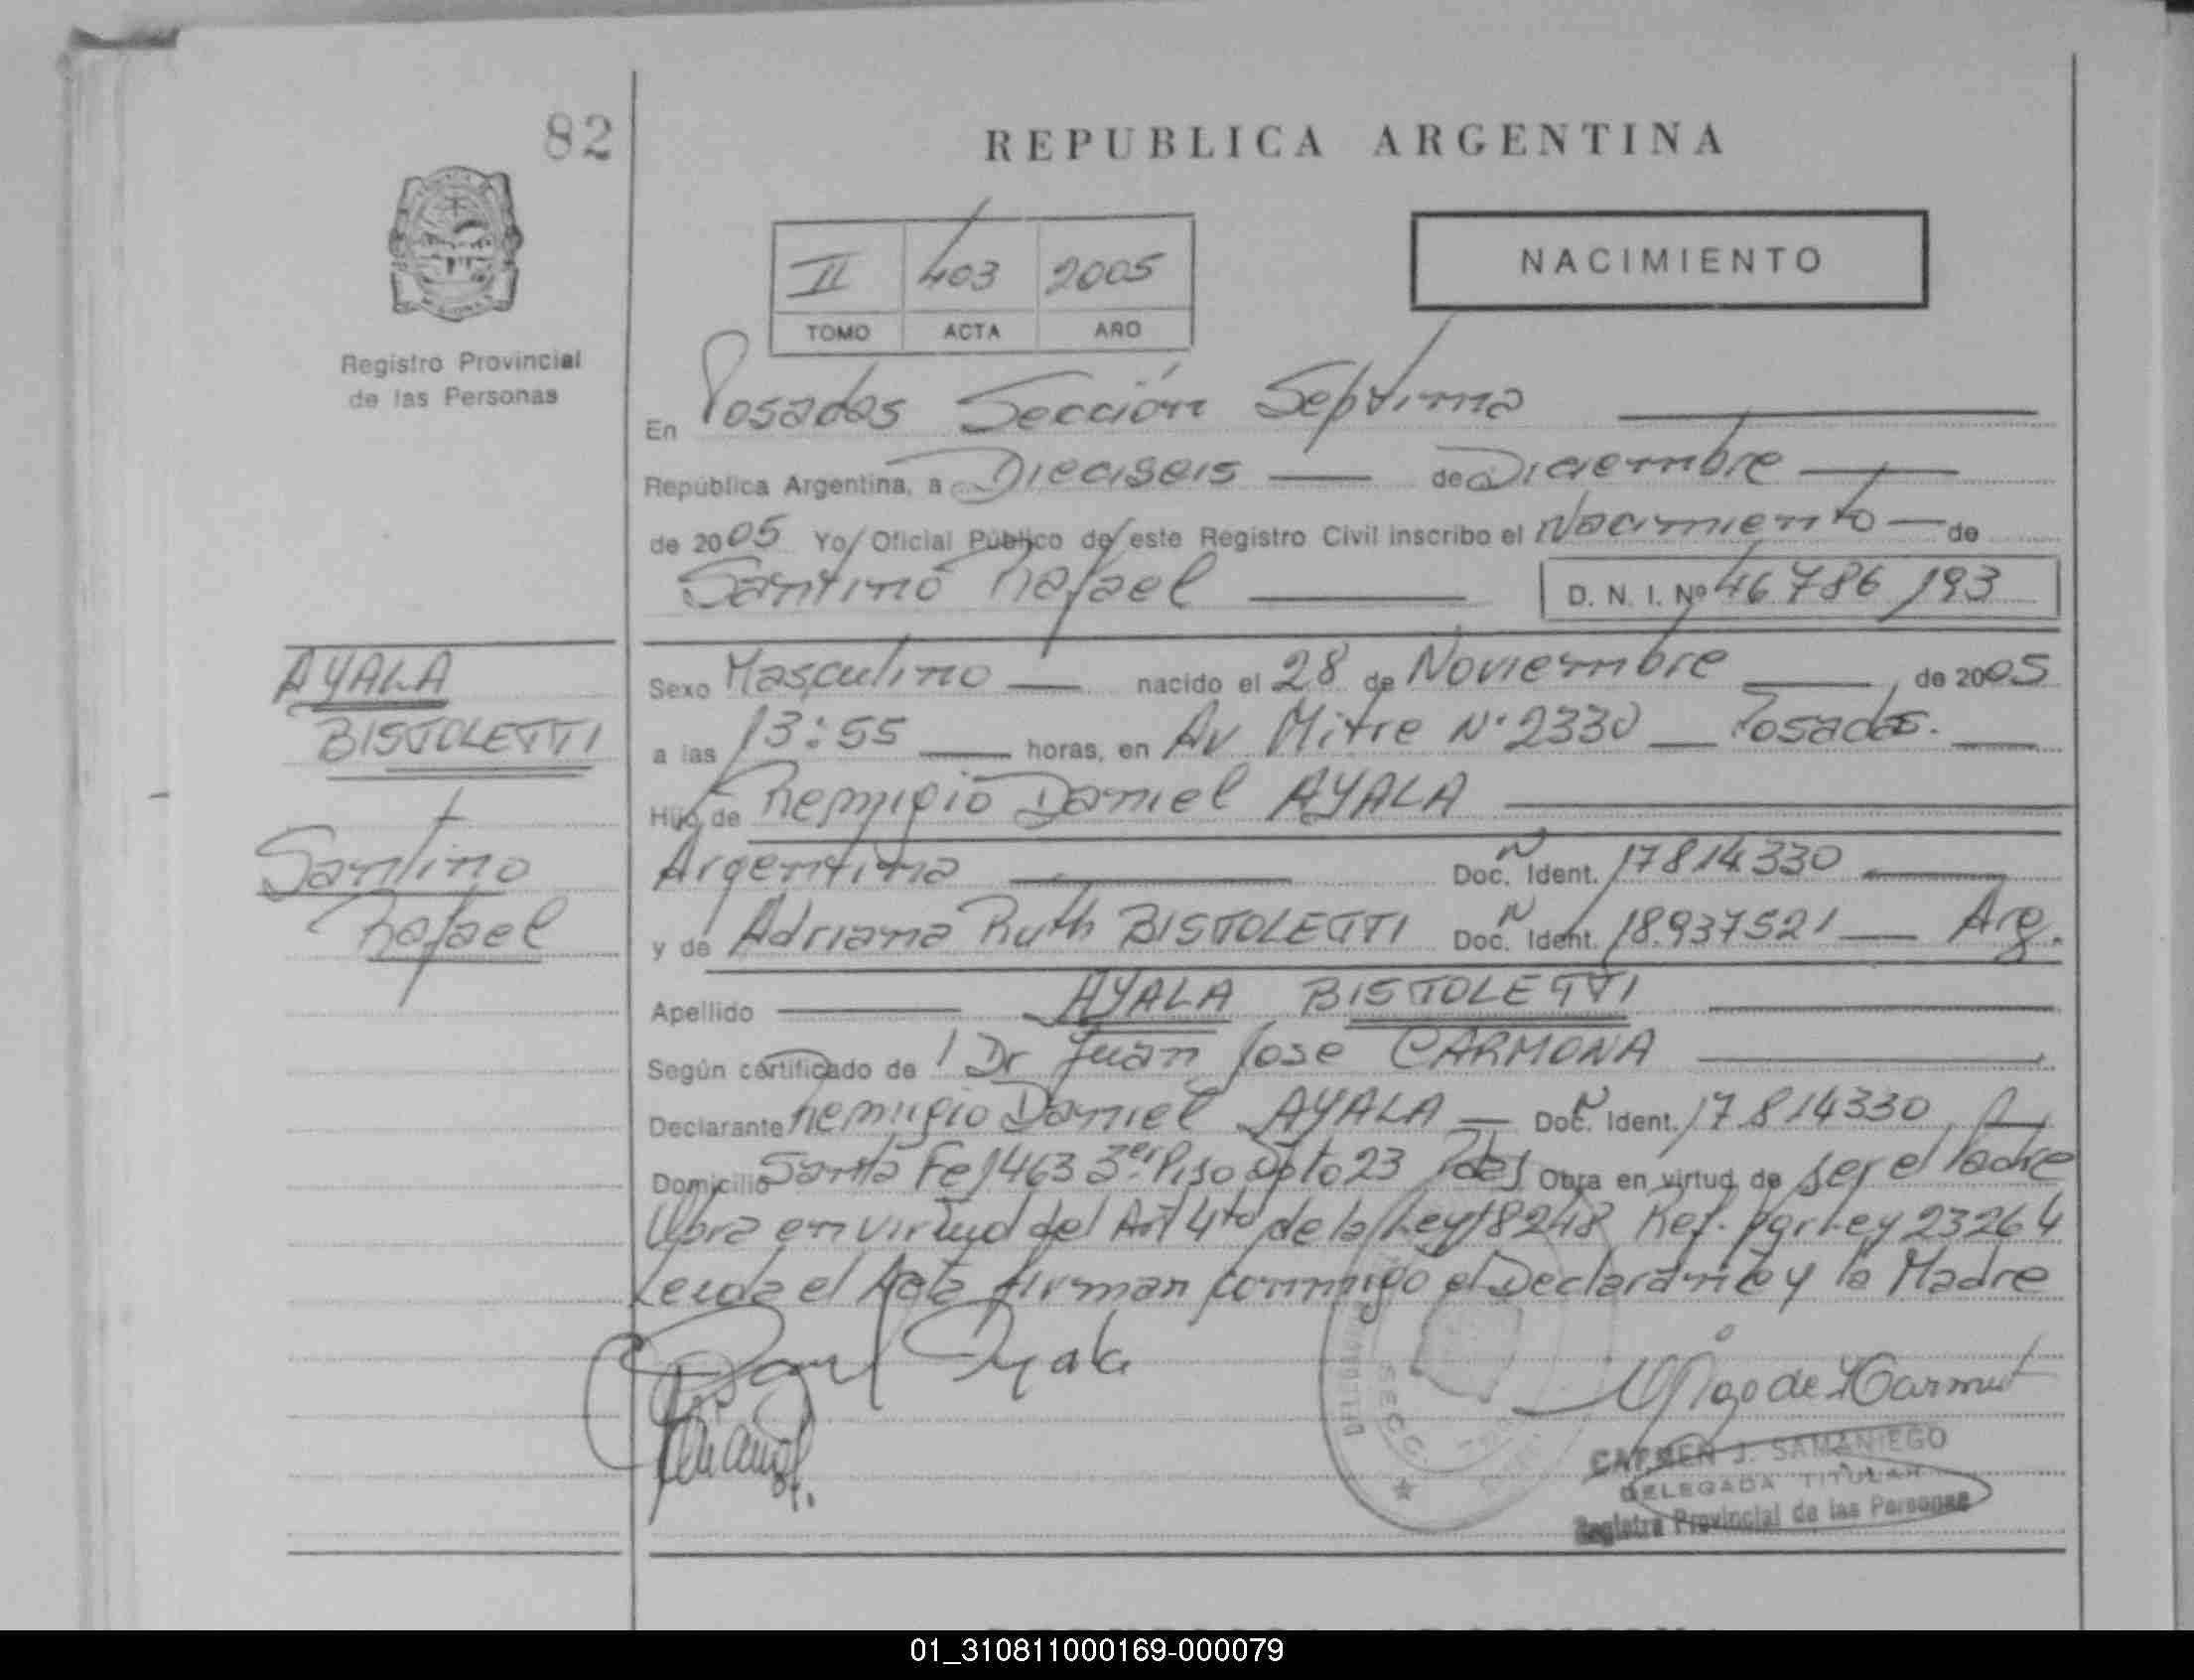 82
REPUBLICA ARGENTINA
II 403 2005
TOMO ACTA AÑO
NACIMIENTO
Registro Provincial
de las Personas
En Posadas Sección Septima
República Argentina, a Dieciseis de Diciembre
de 2005 Yo Oficial Público de este Registro Civil inscribo el Nacimiento de
Santino Rafael D. N. I. Nº 46.786.193
AYALA
BISTOLETTI
Santino
Rafael
Sexo Masculino nacido el 28 de Noviembre de 2005
a las 13:55 horas, en Av Mitre Nº 2330 Posadas.
Hijo de Remigio Daniel AYALA
Argentina Doc. Ident. 17814330
y de Adriana Ruth BISTOLETTI Doc. Ident. 18.937521 Arg.
Apellido AYALA BISTOLETTI
Según certificado de Dr Juan Jose CARMONA
Declarante Remigio Daniel AYALA Doc. Ident. 17.814330
Domicilio Santa Fe 1463 3er Piso Dpto 23 Pdas Obra en virtud de ser el Padre
Obra en virtud del Art 4to de la Ley 18248 Ref. por Ley 23264
Leida el Acta firman conmigo el Declarante y la Madre
Ayala
SECC.
CARMEN J. SAMANIEGO
DELEGADA TITULAR
Registro Provincial de las Personas
01_310811000169-000079